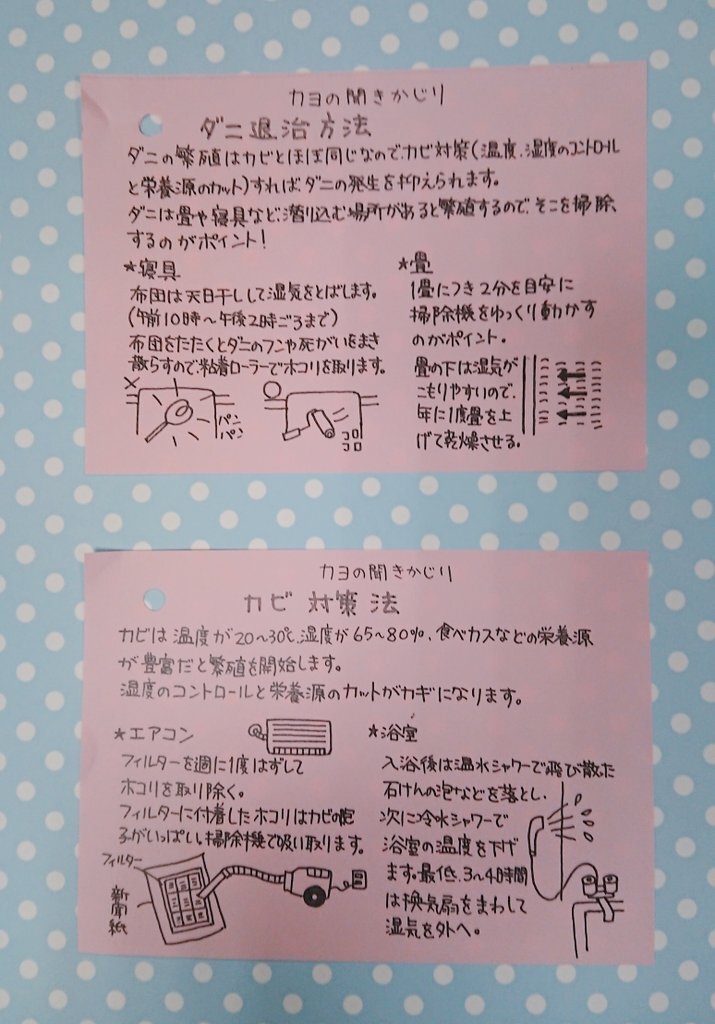 カヨの聞きかじり
ダニ退治方法
ダニの繁殖はカビとほぼ同じなので、カビ対策(温度、湿度のコントロール
と栄養源のカット)すれば、ダニの発生を抑えられます。
ダニは畳や寝具など、潜り込む場所があると繁殖するので、そこを掃除
するのがポイント!
★寝具
布団は天日干しして湿気をとばします。
(午前10時〜午後2時ごろまで)
布団をたたくとダニのフンや死がいをまき
散らすので、粘着ローラーでホコリを取ります。
×
パン
パン
○
コロ
コロ
★畳
1畳につき2分を目安に
掃除機をゆっくり動かす
のがポイント。
畳の下は湿気が
こもりやすいので、
年に1度畳を上
げて乾燥させる。
カヨの聞きかじり
カビ対策法
カビは温度が20〜30℃、湿度が65〜80%、食べカスなどの栄養源
が豊富だと繁殖を開始します。
湿度のコントロールと栄養源のカットがカギになります。
★エアコン
フィルターを週に1度はずして
ホコリを取り除く。
フィルターに付着したホコリはカビの胞
子がいっぱい。掃除機で吸い取ります。
フィルター
新聞紙
★浴室
入浴後は温水シャワーで飛び散った
石けんの泡などを落とし、
次に冷水シャワーで
浴室の温度を下げ
ます。最低、3〜4時間
は換気扇をまわして
湿気を外へ。